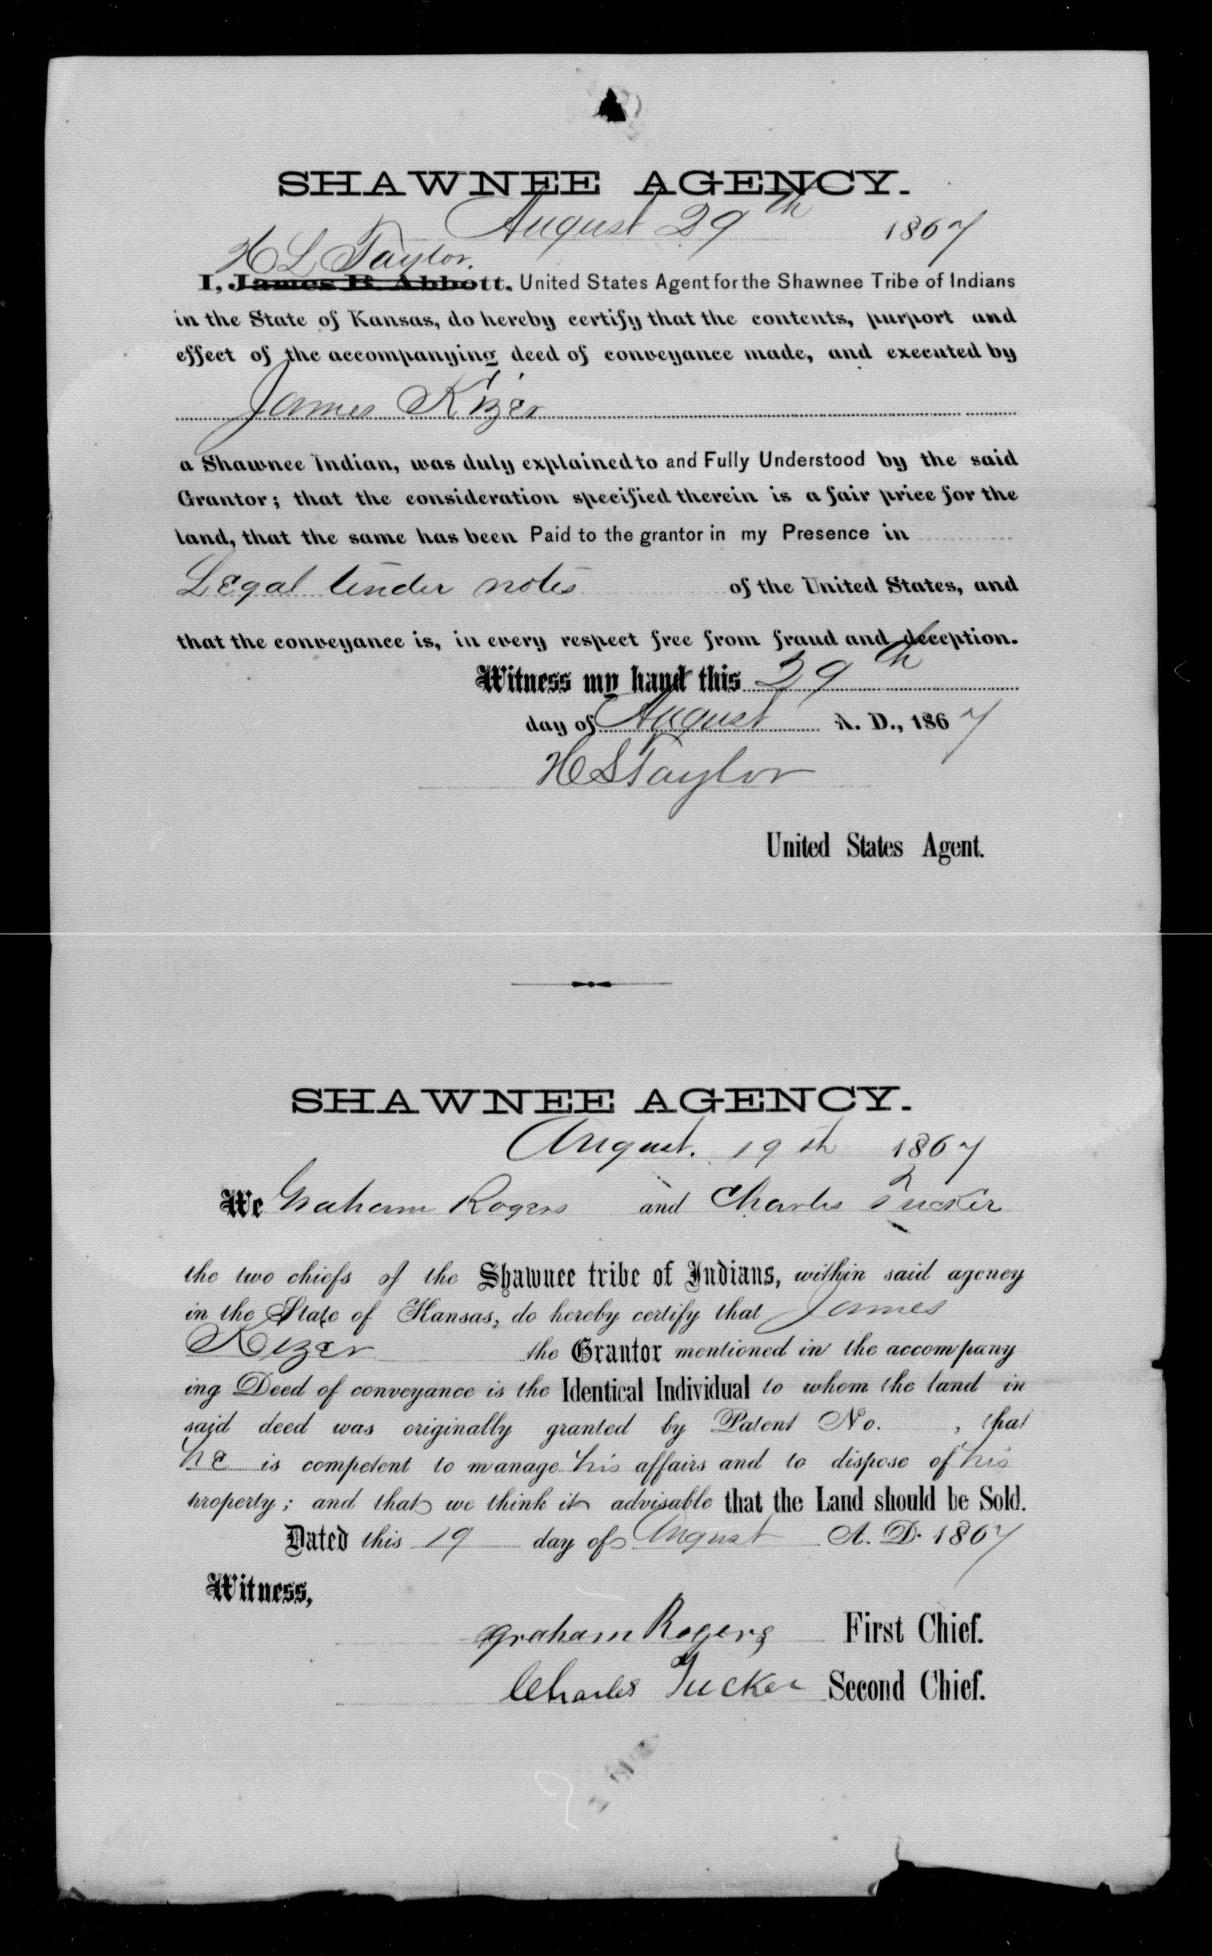 SHAWNEE AGENCY.
August 29th 1867
H L Taylor.
I, James B. Abbott, United States Agent for the Shawnee Tribe of Indians
in the State of Kansas, do hereby certify that the contents, purport and
effect of the accompanying deed of conveyance made, and executed by
James Kizer
a Shawnee Indian, was duly explained to and Fully Understood by the said
Grantor; that the consideration specified therein is a fair price for the
land, that the same has been Paid to the grantor in my Presence in
Legal tender notes of the United States, and
that the conveyance is, in every respect free from fraud and deception.
Witness my hand this 29th
day of August A. D., 1867
H L Taylor
United States Agent.
SHAWNEE AGENCY.
August. 19th 1867
We Graham Rogers and Charles Tucker
the two chiefs of the Shawnee tribe of Indians, within said agency
in the State of Kansas, do hereby certify that James
Kizer the Grantor mentioned in the accompany
ing Deed of conveyance is the Identical Individual to whom the land in
said deed was originally granted by Patent No. , that
he is competent to manage his affairs and to dispose of his
property; and that we think it advisable that the Land should be Sold.
Dated this 19 day of August A. D. 1867
Witness,
Graham Rogers First Chief.
Charles Tucker Second Chief.